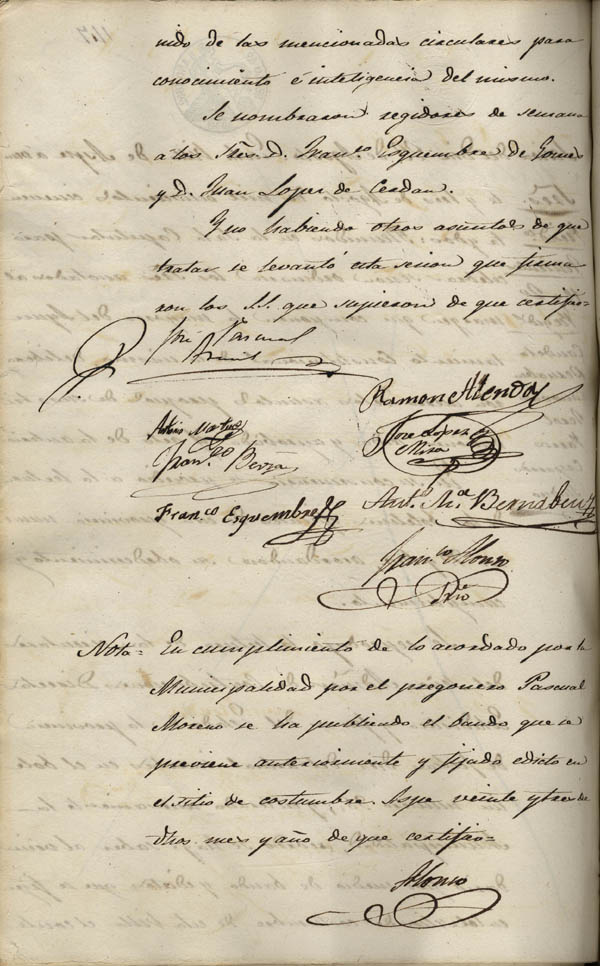 nido de las mencionadas circulares para
conocimiento é inteligencia del mismo.
Se nombraron regidores de semana
a los Sres. D. Franco. Esquembre de Gomes
y D. Juan Lopez de Cerdan.
Y no habiendo otros asuntos de que
tratar se levantó esta sesion que firma
ron los SS. que supieron de que certifico=
José Pascual
Ramon Allenda
Antonio Martinez
Jose Lopez y
Mira
Franco
Franco Esquembre
Anto. Ma. Bernabeu
Franco Alonso
Srio
Nota= En cumplimiento de lo acordado por la
Municipalidad por el pregonero Pascual
Moreno se ha publicado el bando que se
previene anteriormente y fijado edicto en
el sitio de costumbre. Aspe veinte y tres de
dhos mes y año de que certifico=
Alonso